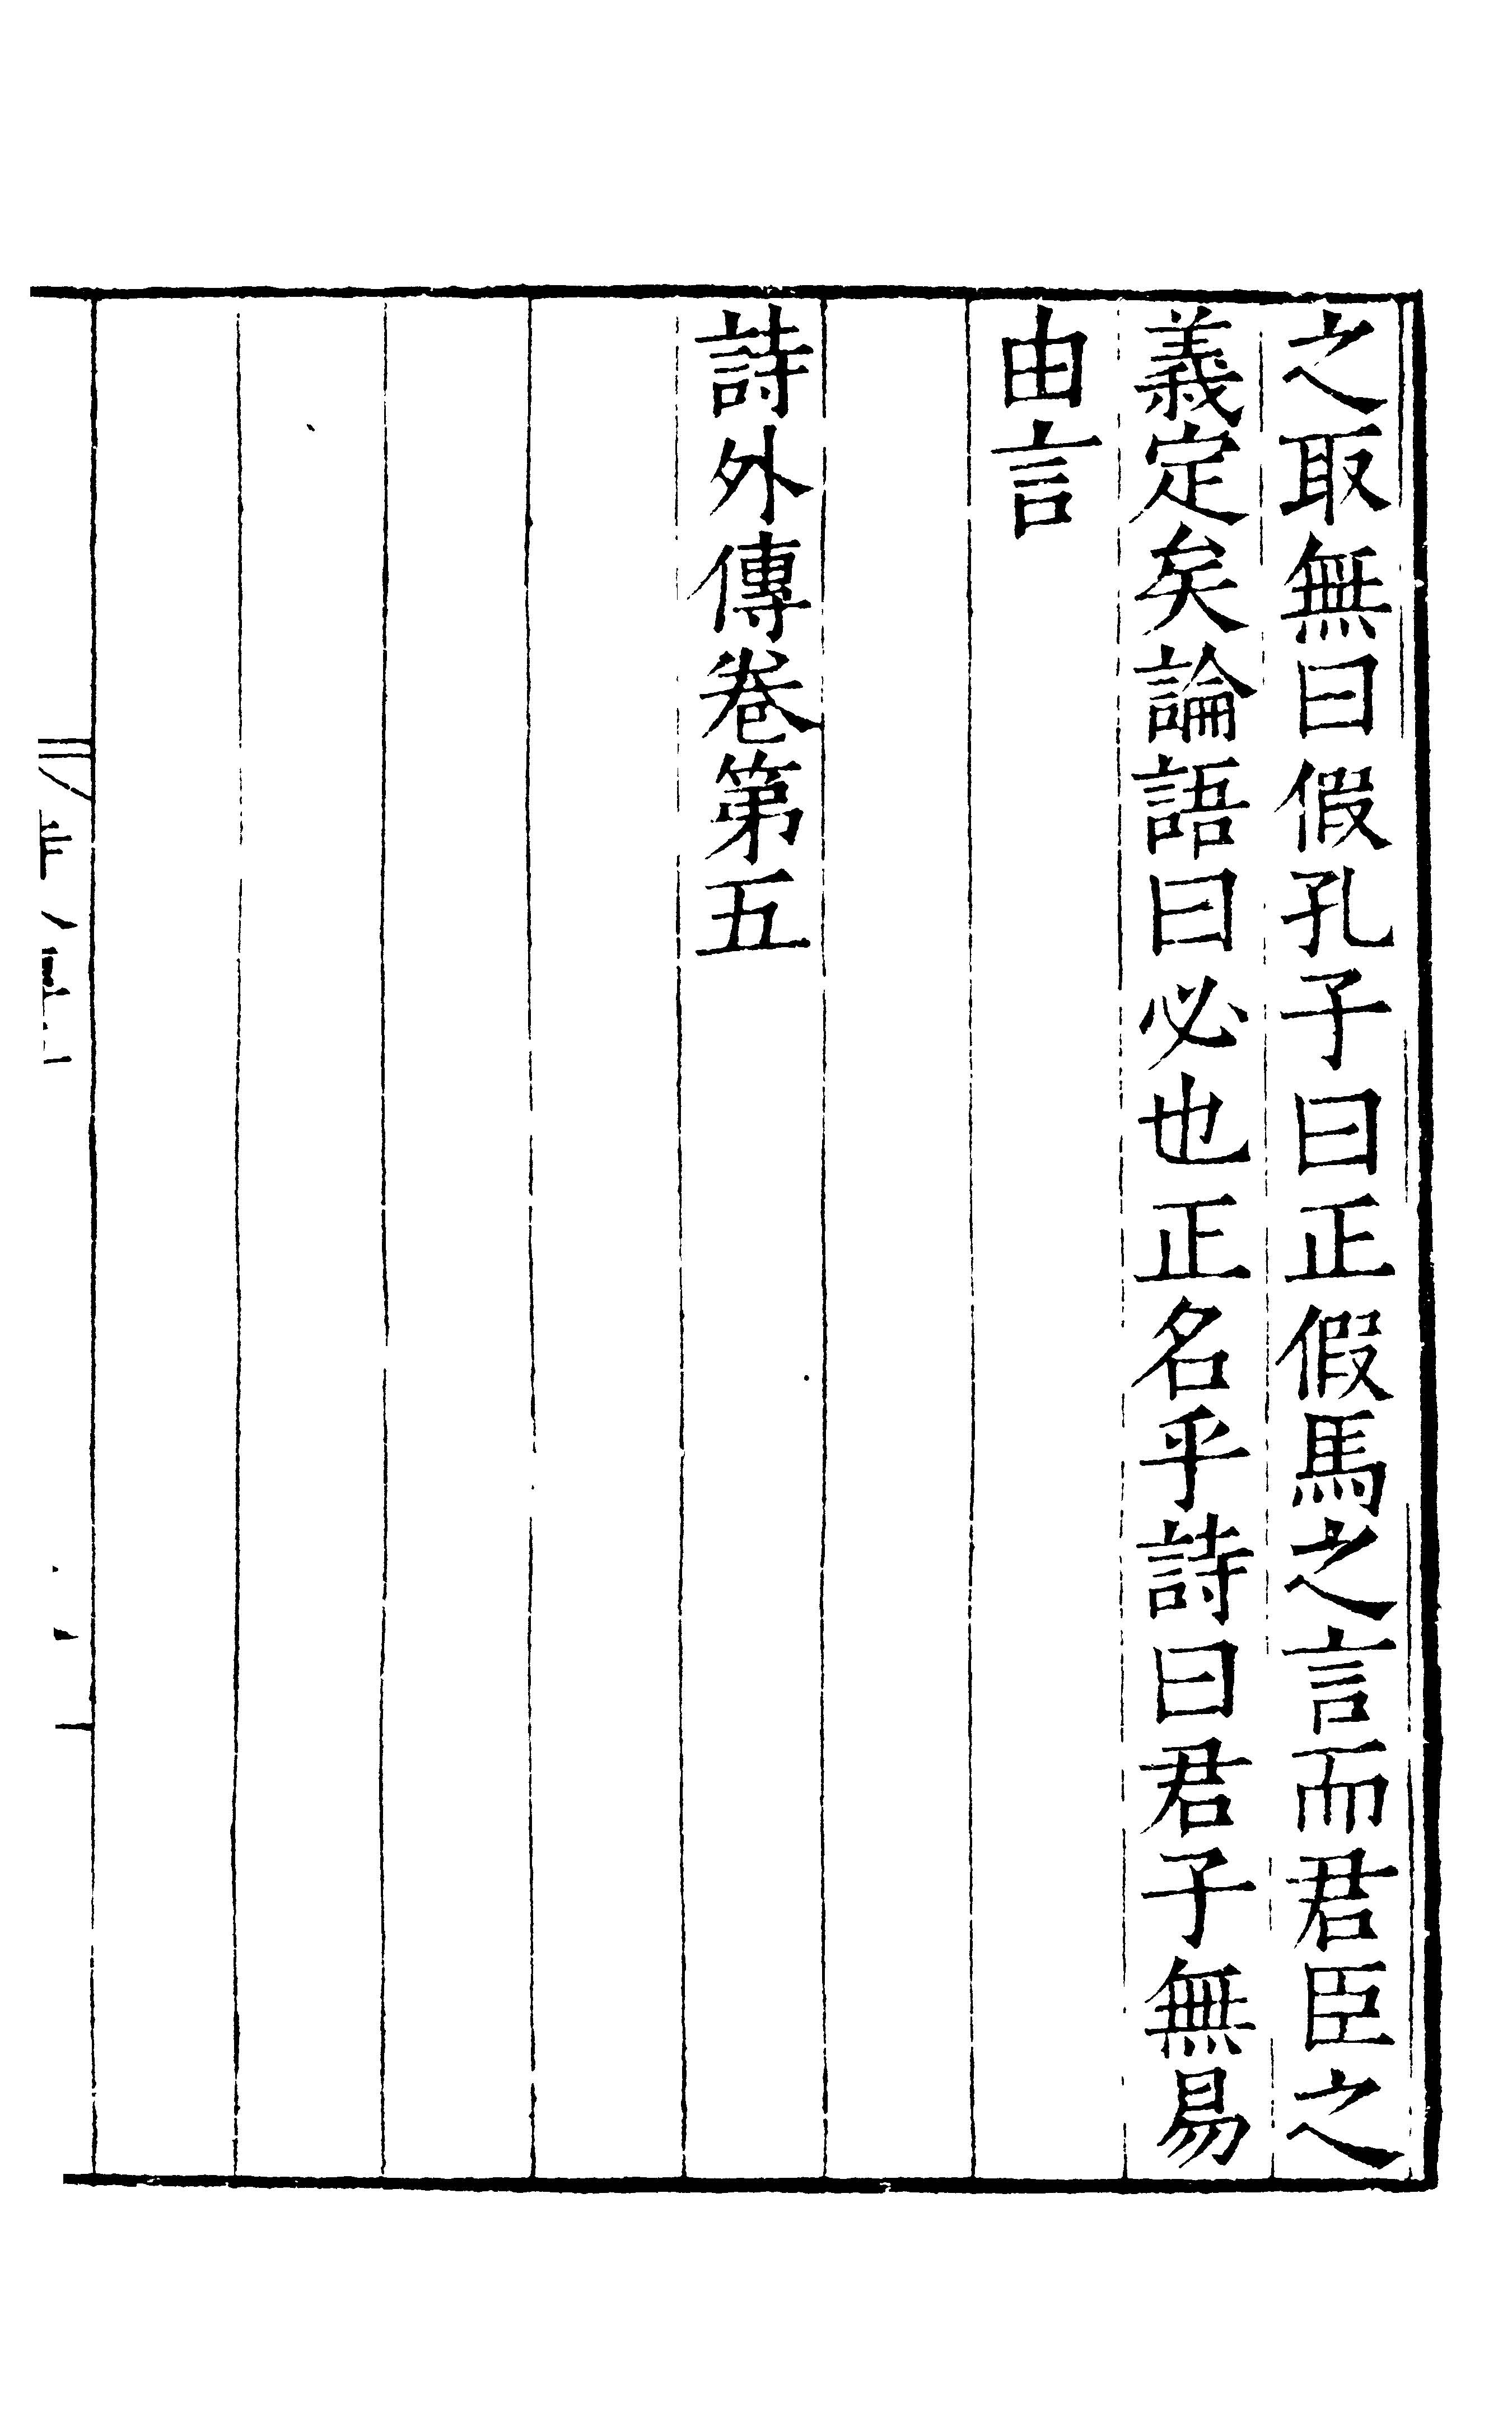 之取無曰假孔子曰正假馬之言而君臣之
義定矣論語曰必也正名乎詩曰君子無易
由言
詩外傳卷第五